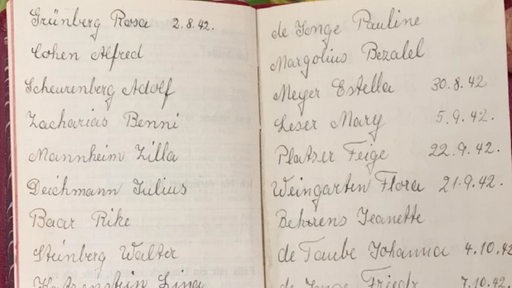 Grünberg Rosa 2.8.42.
Cohen Alfred
Scheurenberg Adolf
Zacharias Benni
Mannheim Zilla
Deichmann Julius
Baar Rike
Steinberg Walter
Katzenstein Lina
de Jonge Pauline
Margolius Bezalel
Meyer Estella 30.8.42
Leser Mary 5.9.42.
Platser Feige 22.9.42.
Weingarten Flora 21.9.42.
Behrens Jeanette
de Taube Johanna 4.10.42
de Jonge Friedr 7.10.42.